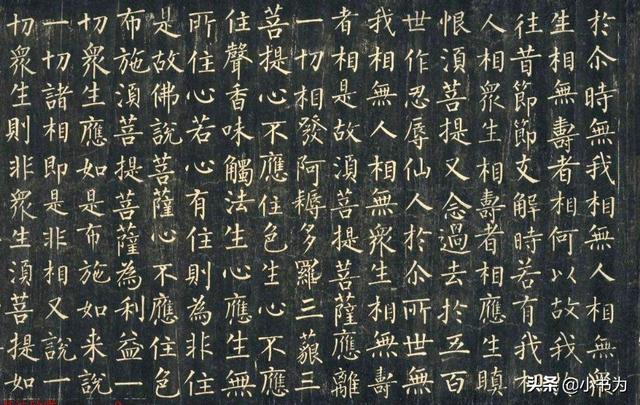 於尒時無我相無人相無衆
生相無壽者相何以故我
往昔節節支解時若有我相
人相衆生相壽者相應生瞋
恨須菩提又念過去於五百
世作忍辱仙人於尒所世無
我相無人相無衆生相無壽
者相是故須菩提菩薩應離
一切相發阿耨多羅三藐三
菩提心不應住色生心不應
住聲香味觸法生心應生無
所住心若心有住則為非住
是故佛說菩薩心不應住色
布施須菩提菩薩為利益一
切衆生應如是布施如来說
一切諸相即是非相又說一
切衆生則非衆生須菩提如
头条 @小书为